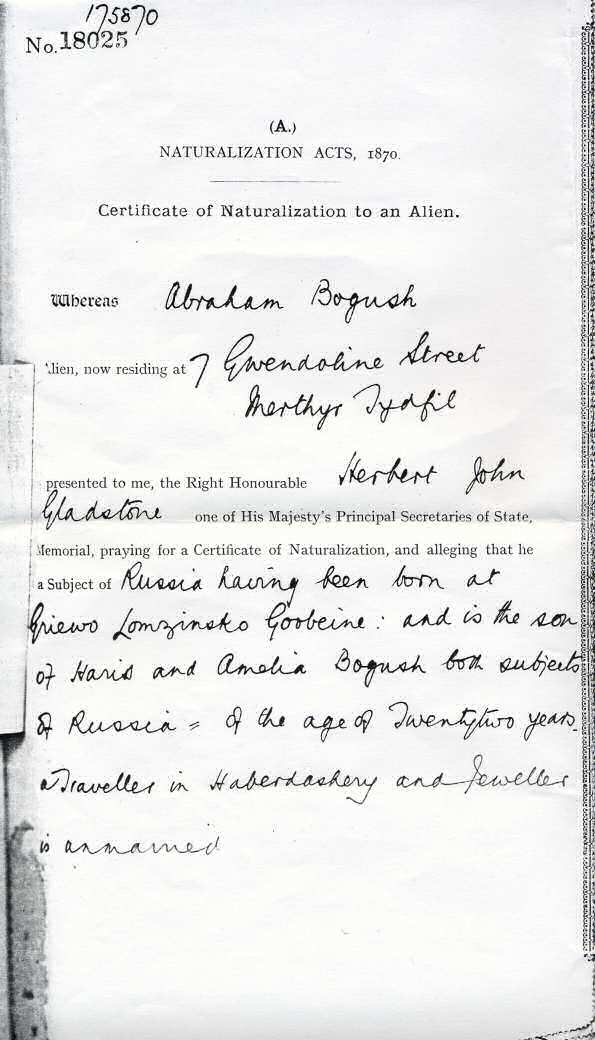 175870
No. 18025
(A.)
NATURALIZATION ACTS, 1870.
Certificate of Naturalization to an Alien.
Whereas Abraham Bogush
Alien, now residing at 7 Gwendoline Street
Merthyr Tydfil
presented to me, the Right Honourable Herbert John
Gladstone one of His Majesty's Principal Secretaries of State,
Memorial, praying for a Certificate of Naturalization, and alleging that he
a Subject of Russia having been born at
Griewo Lomzinsko Goobeine: and is the son
of Haris and Amelia Bogush both subjects
of Russia = of the age of Twentytwo years.
a Traveller in Haberdashery and Jeweller
is unmarried